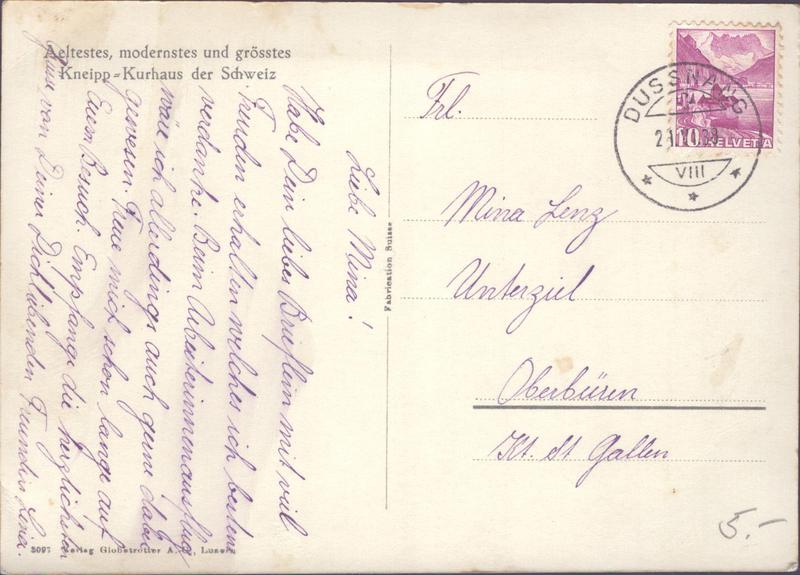 Aeltestes, modernstes und grösstes
Kneipp-Kurhaus der Schweiz
Liebe Mina!
Habe Dein liebes Brieflein mit viel
Freuden erhalten welches ich bestens
verdanke. Beim Arbeiterinnenausflug
wäre ich allerdings auch gern dabei
gewesen. Freue mich schon lange auf
Euern Besuch. Empfange die herzlichsten
Grüsse von Deiner Dich liebenden Freundin Lina.
Fabrication Suisse
3097 Verlag Globetrotter A. G., Luzern
DUSSNANG
VIII
10 HELVETIA
Frl.
Mina Lenz
Unterziel
Oberbüren
Kt. St Gallen
5.-